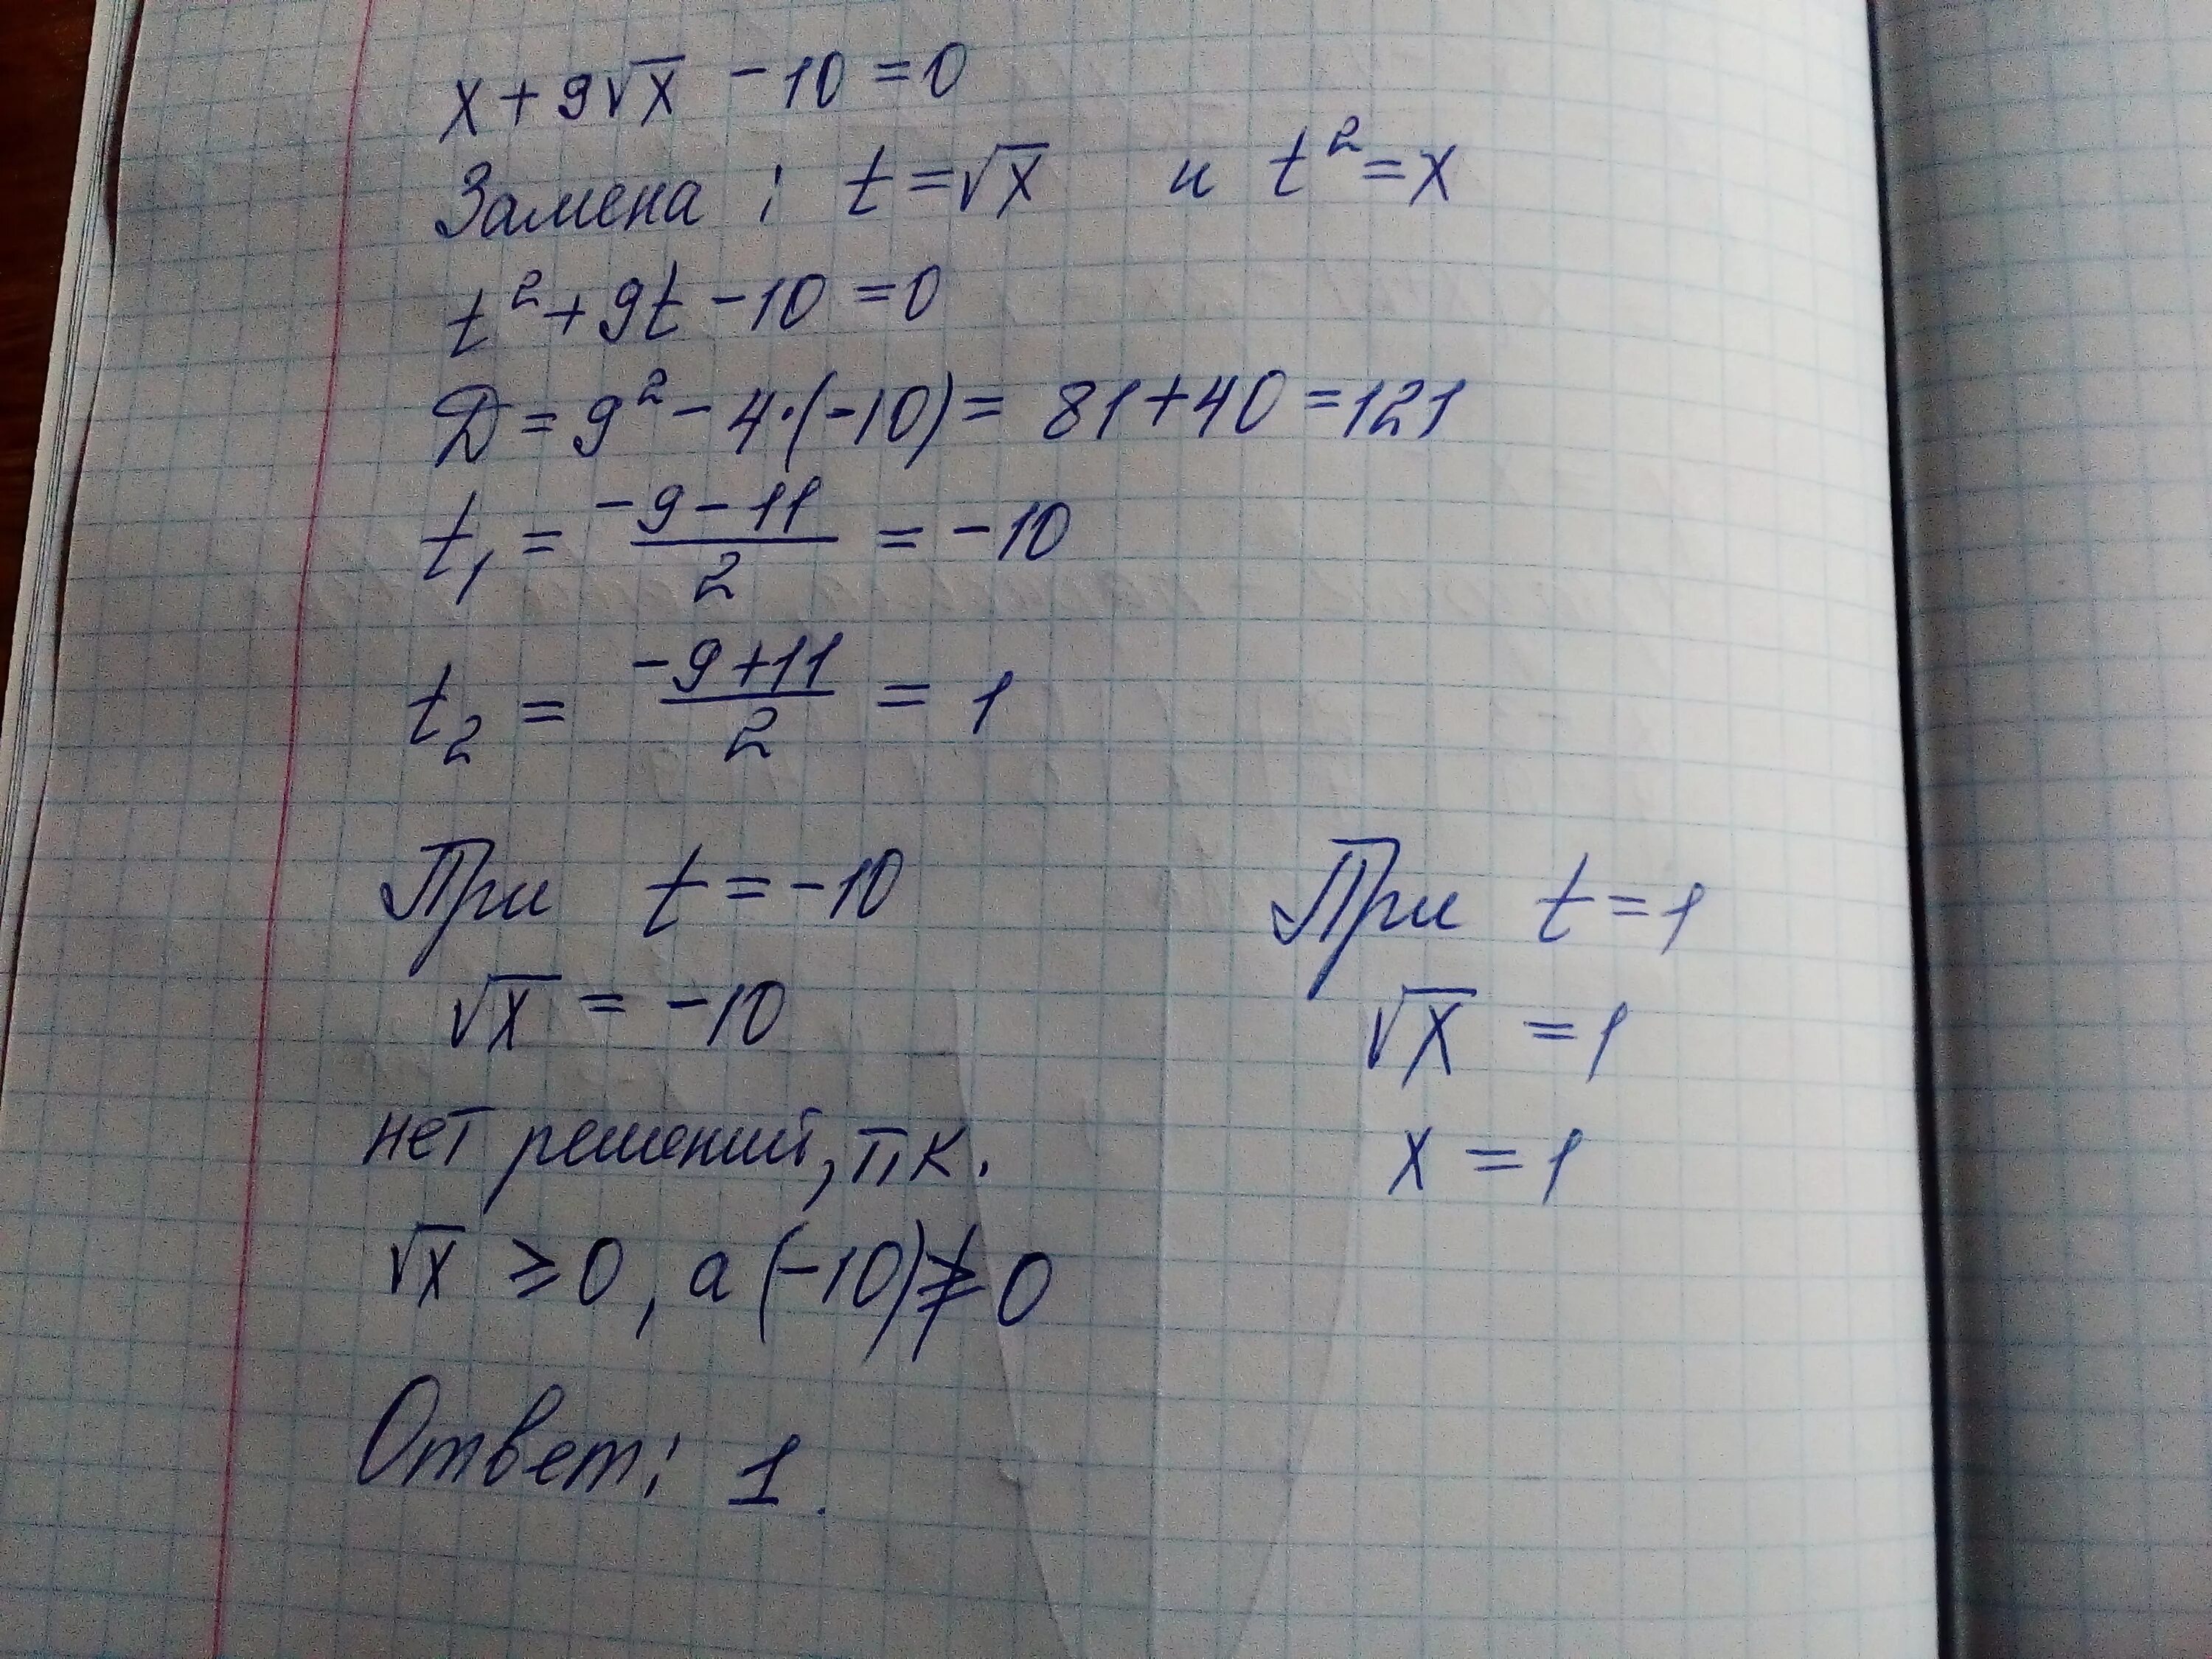 x + 9√x - 10 = 0
Замена : t = √x и t² = x
t² + 9t - 10 = 0
Д = 9² - 4·(-10) = 81 + 40 = 121
t₁ = (-9-11)/2 = -10
t₂ = (-9+11)/2 = 1
При t = -10
√x = -10
нет решений, т.к.
√x ≥ 0, а (-10) ≱ 0
При t = 1
√x = 1
x = 1
Ответ: 1.